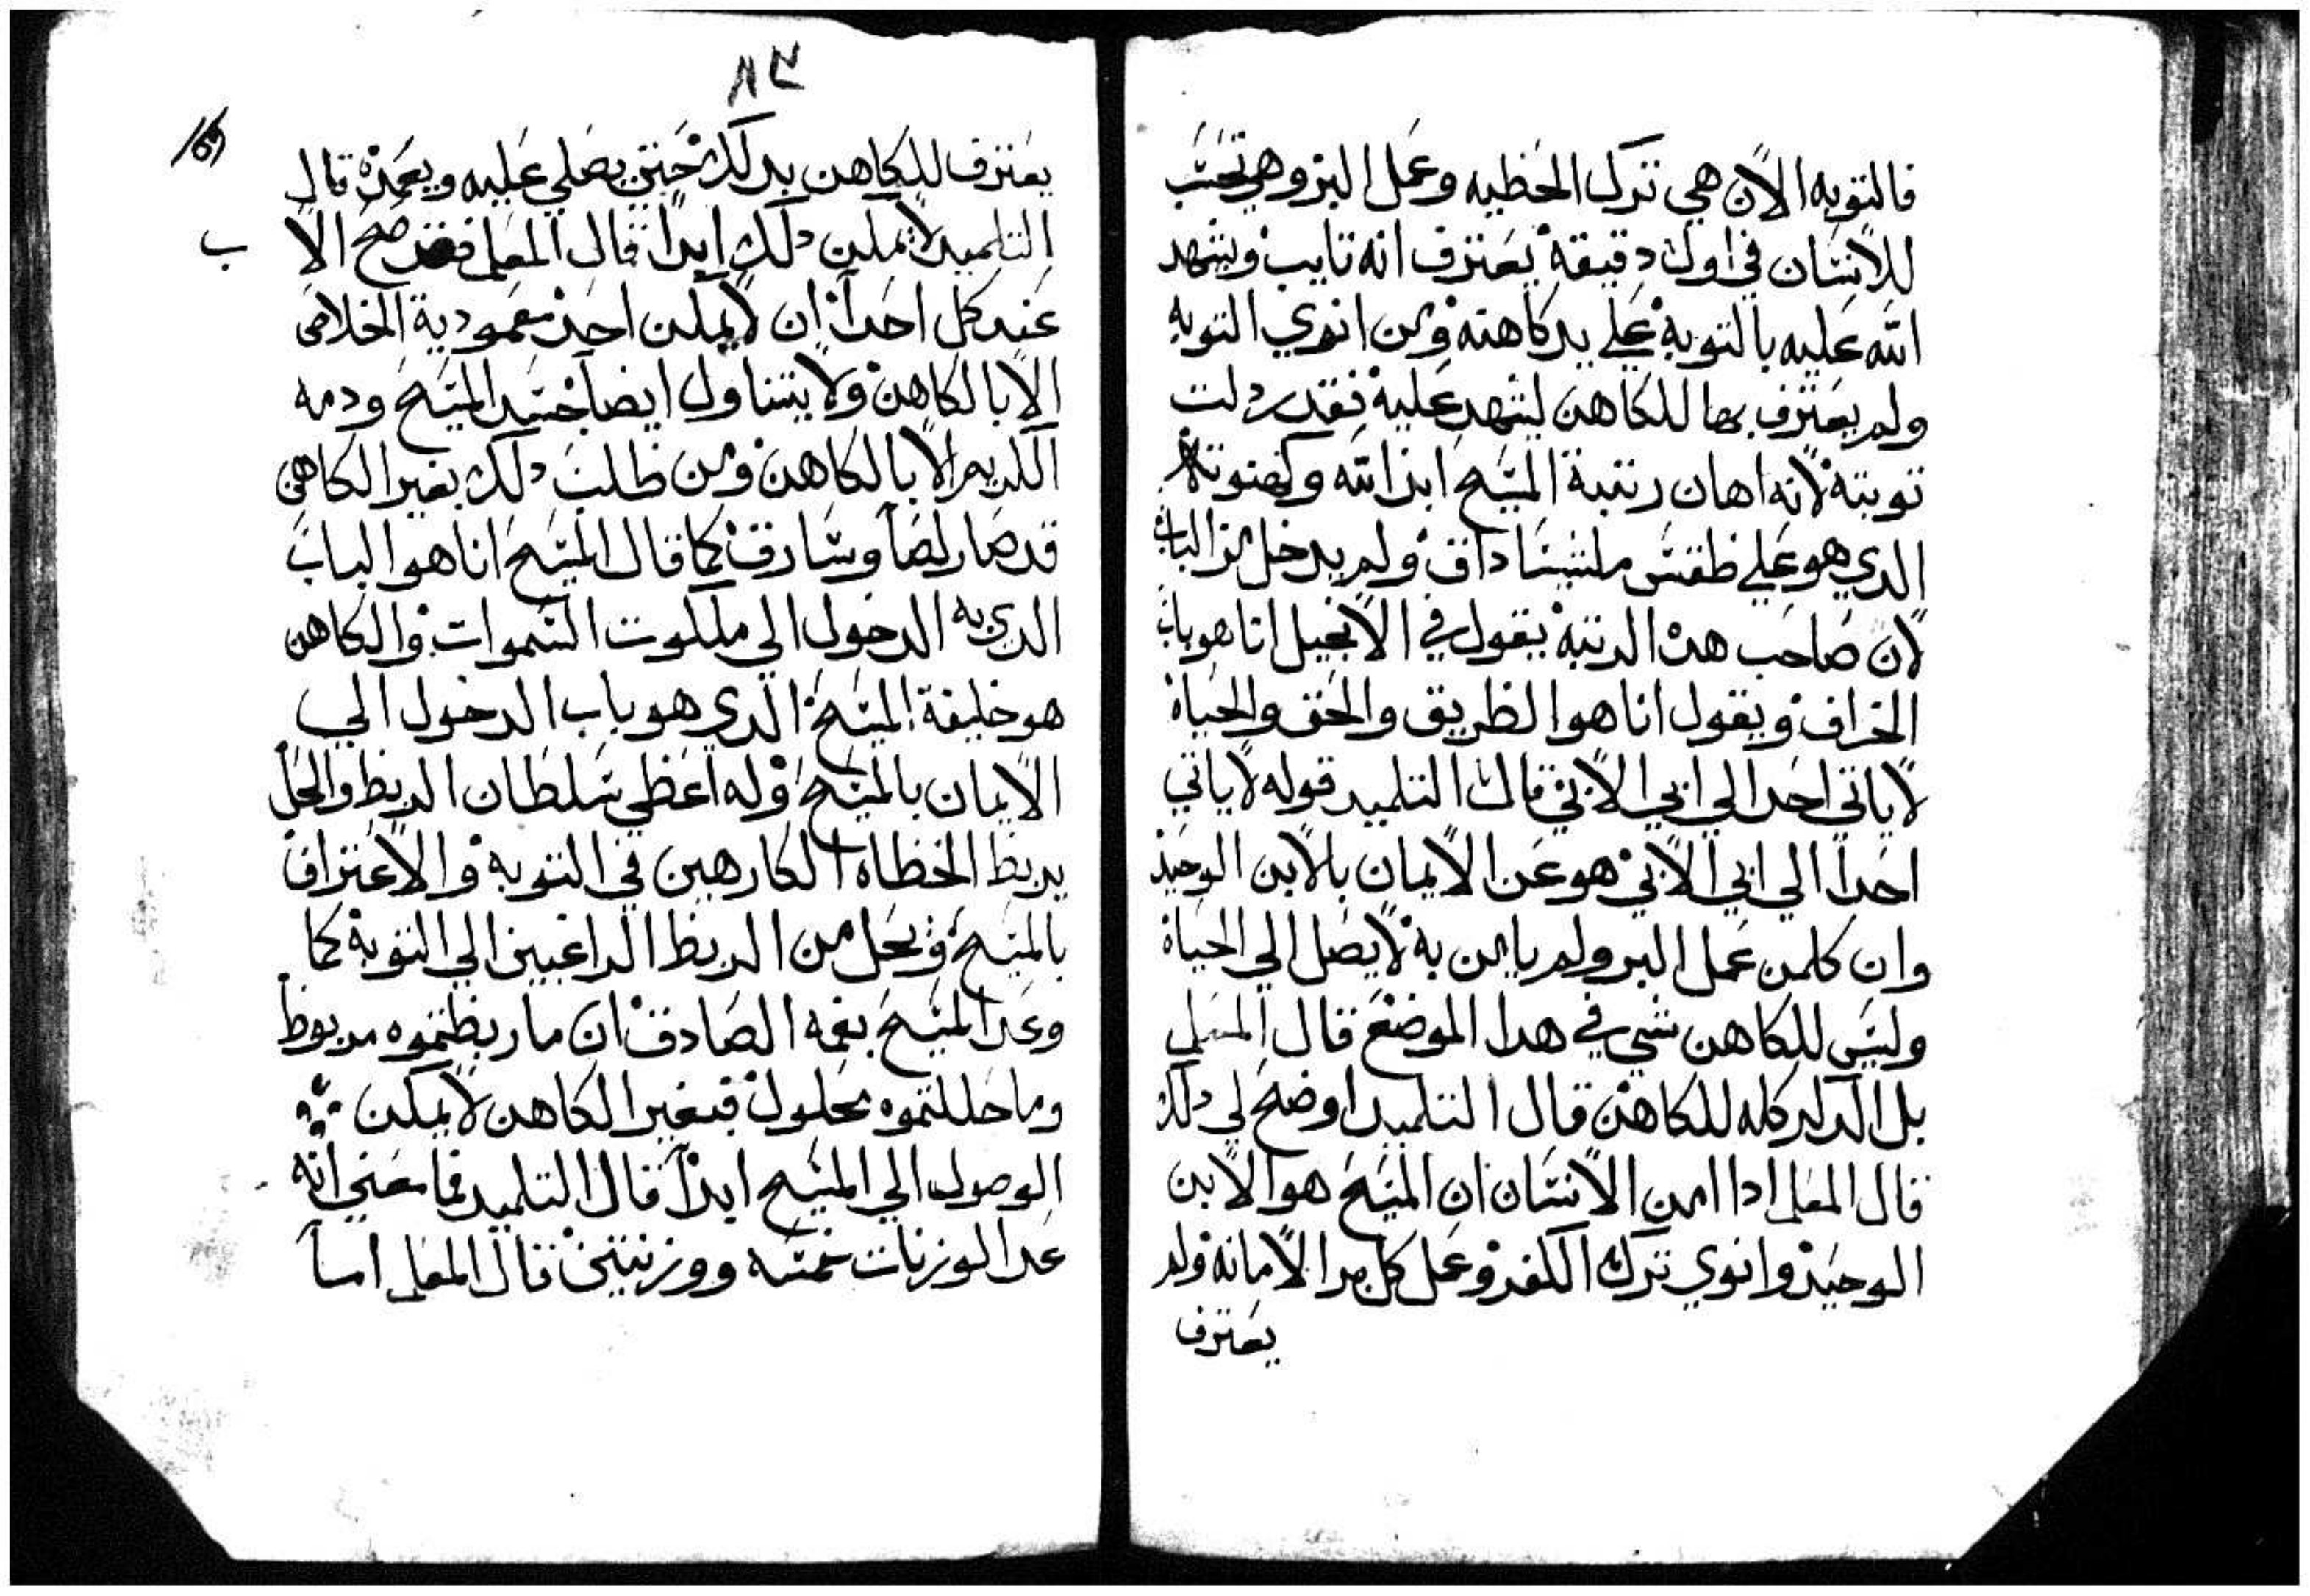 فالتوبه الان هي ترك الخطيه وعمل البر وهي تحتب
للانسان في اول دقيقة يعترف انه تايب ويشهد
الله عليه بالتوبة علي يد كاهنه ومن انوي التوبه
ولم يعترف بها للكاهن ليشهد عليه فقد ردلت
توبته لانه اهان رتبة المسيح ابن الله وكهنوته
الدي هو علي طقس ملشيساداق ولم يدخل من الباب
لان صاحب هده الرتبة يقول في الانجيل انا هو باب
الخراف ويقول انا هوا الطريق والحق والحياة
لاياتي احدا الي ابي الا بي قال التلميد قوله لاياتي
احدا الي ابي الا بي هو عن الايمان بالابن الوحيد
وان كلمن عمل البر ولم يامن به لايصل الي الحياة
وليس للكاهن شي في هدا الموضع قال المعلم
بل الدلر كله للكاهن قال التلميد اوضح لي دلك
قال المعلم ادا امن الانسان ان المسيح هوا الابن
الوحيد وانوي ترك الكفر وعمل كل بر الامانه ولم
يعترف
٨٣
يعترف للكاهن بدلك حتي يصلي عليه ويعمده قال
التلميد لايمكن دلك ابدا قال المعلم فقد صح الا
ب
عند كل احدا ان لايمكن احد معمودية الخلاص
الا بالكاهن ولايتناول ايضا جسد المسيح ودمه
الكريم الا بالكاهن ومن طلب دلك بغير الكاهن
قد صار لصا وسارق كما قال المسيح انا هوا الباب
الدي به الدخول الي ملكوت السموات والكاهن
هو خليفة المسيح الدي هو باب الدخول الي
الايمان بالمسيح وله اعطي سلطان الربط والحل
يربط الخطاه الكارهين في التوبة والاعتراف
بالمسيح ويحل من الربط الراغبين الي التوبة كما
وعد المسيح بفمه الصادق ان ما ربطتموه مربوط
وما حللتموه محلول فبغير الكاهن لايمكن
الوصول الي المسيح ابدا قال التلميد فما معني انه
عدا الوزنات خمسه ووزنتين قال المعلم اما